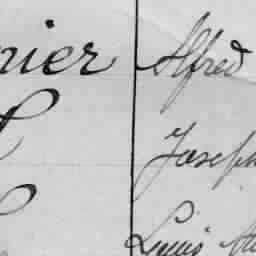 nier Alfred
Joseph
Louis